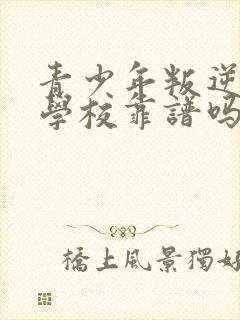 青少年叛逆
學校靠譜嗎
橋上風景獨好